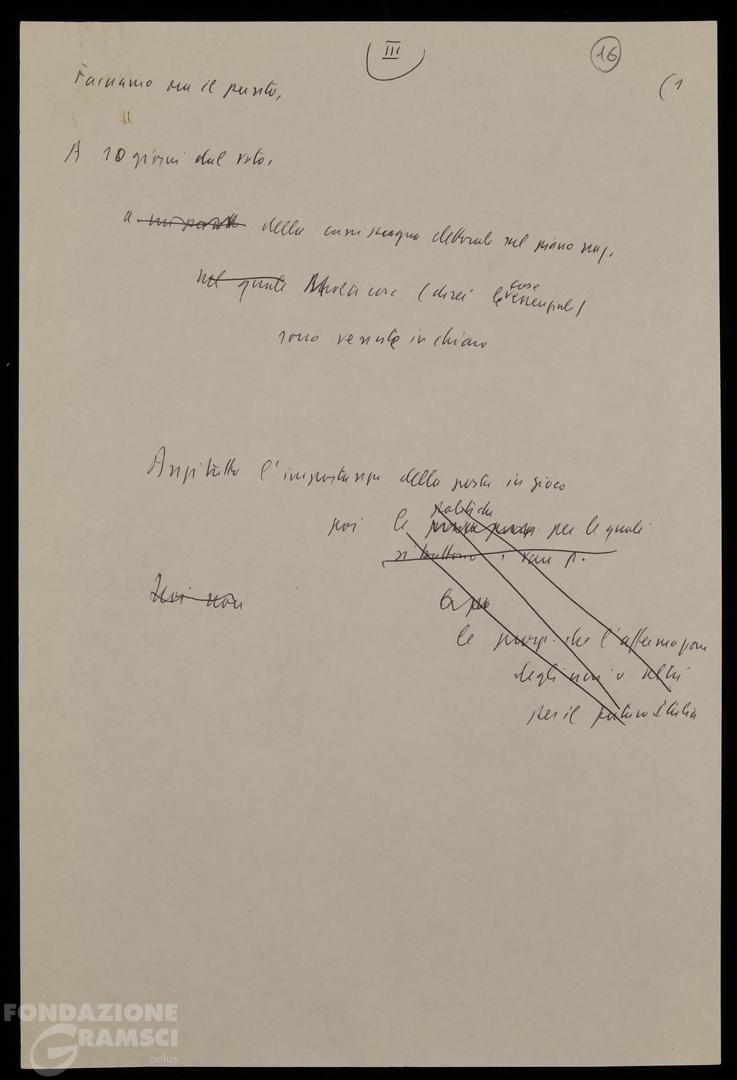 III
16
(1
Facciamo ora il punto,
A 10 giorni dal voto,
a della campagna elettorale sul piano naz.
nel quale Molte cose (direi le cose essenziali)
sono venute in chiaro
Anzitutto l'importanza della posta in gioco
politiche
poi le per le quali
si battono i vari p.
Noi non
le
le che l'affermazione
degli uni o altri
per il futuro d'Italia
FONDAZIONE
GRAMSCI
onlus